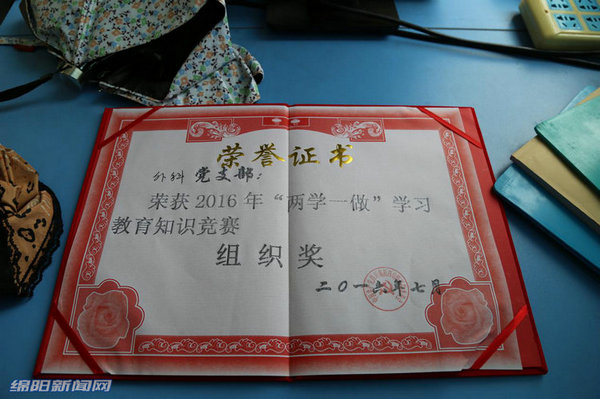 荣誉证书
外科 党支部：
荣获2016年“两学一做”学习
教育知识竞赛
组织奖
二〇一六年七月
绵阳新闻网